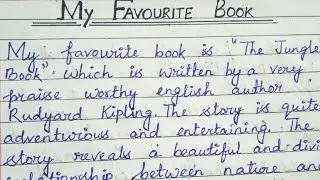 My Favourite Book
My favourite book is "The Jungle
Book" which is written by a very
praise worthy english author
Rudyard Kipling. The story is quite
adventurious and entertaining. The
story reveals a beautiful and divi
relationship between nature an